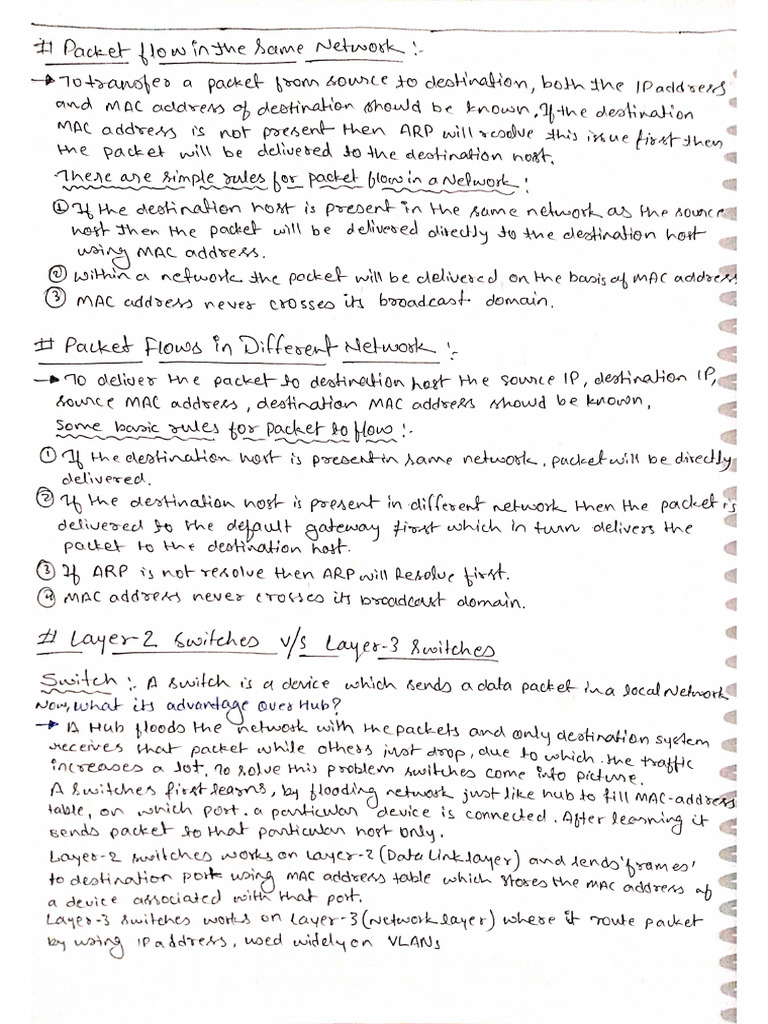 # Packet flow in the Same Network :-
→ To transfer a packet from source to destination, both the IP address
and MAC address of destination should be known. If the destination
MAC address is not present then ARP will resolve this issue first then
the packet will be delivered to the destination host.
There are simple rules for packet flow in a Network :
① If the destination host is present in the same network as the source
host then the packet will be delivered directly to the destination host
using MAC address.
② Within a network the packet will be delivered on the basis of MAC address
③ MAC address never crosses its broadcast domain.
# Packet Flows in Different Network :-
→ To deliver the packet to destination host the source IP, destination IP,
source MAC address, destination MAC address should be known.
Some basic rules for packet to flow :-
① If the destination host is present in same network, packet will be directly
delivered.
② If the destination host is present in different network then the packet is
delivered to the default gateway first which in turn delivers the
packet to the destination host.
③ If ARP is not resolve then ARP will Resolve first.
④ MAC address never crosses its broadcast domain.
# Layer-2 Switches v/s Layer-3 Switches
Switch :- A switch is a device which sends a data packet in a local Network
Now, what its advantage over Hub?
→ A Hub floods the network with the packets and only destination system
receives that packet while others just drop, due to which the traffic
increases a lot. To solve this problem switches come into picture.
A switches first learns, by flooding network just like hub to fill MAC-address
table, on which port a particular device is connected. After learning it
sends packet to that particular host only.
Layer-2 switches works on layer-2 (Data Link layer) and sends 'frames'
to destination port using MAC address table which stores the MAC address of
a device associated with that port.
Layer-3 switches works on Layer-3 (Network layer) where it route packet
by using IP address, used widely on VLANs